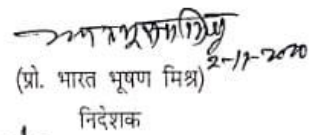 2-11-2020
(प्रो. भारत भूषण मिश्र)
निदेशक